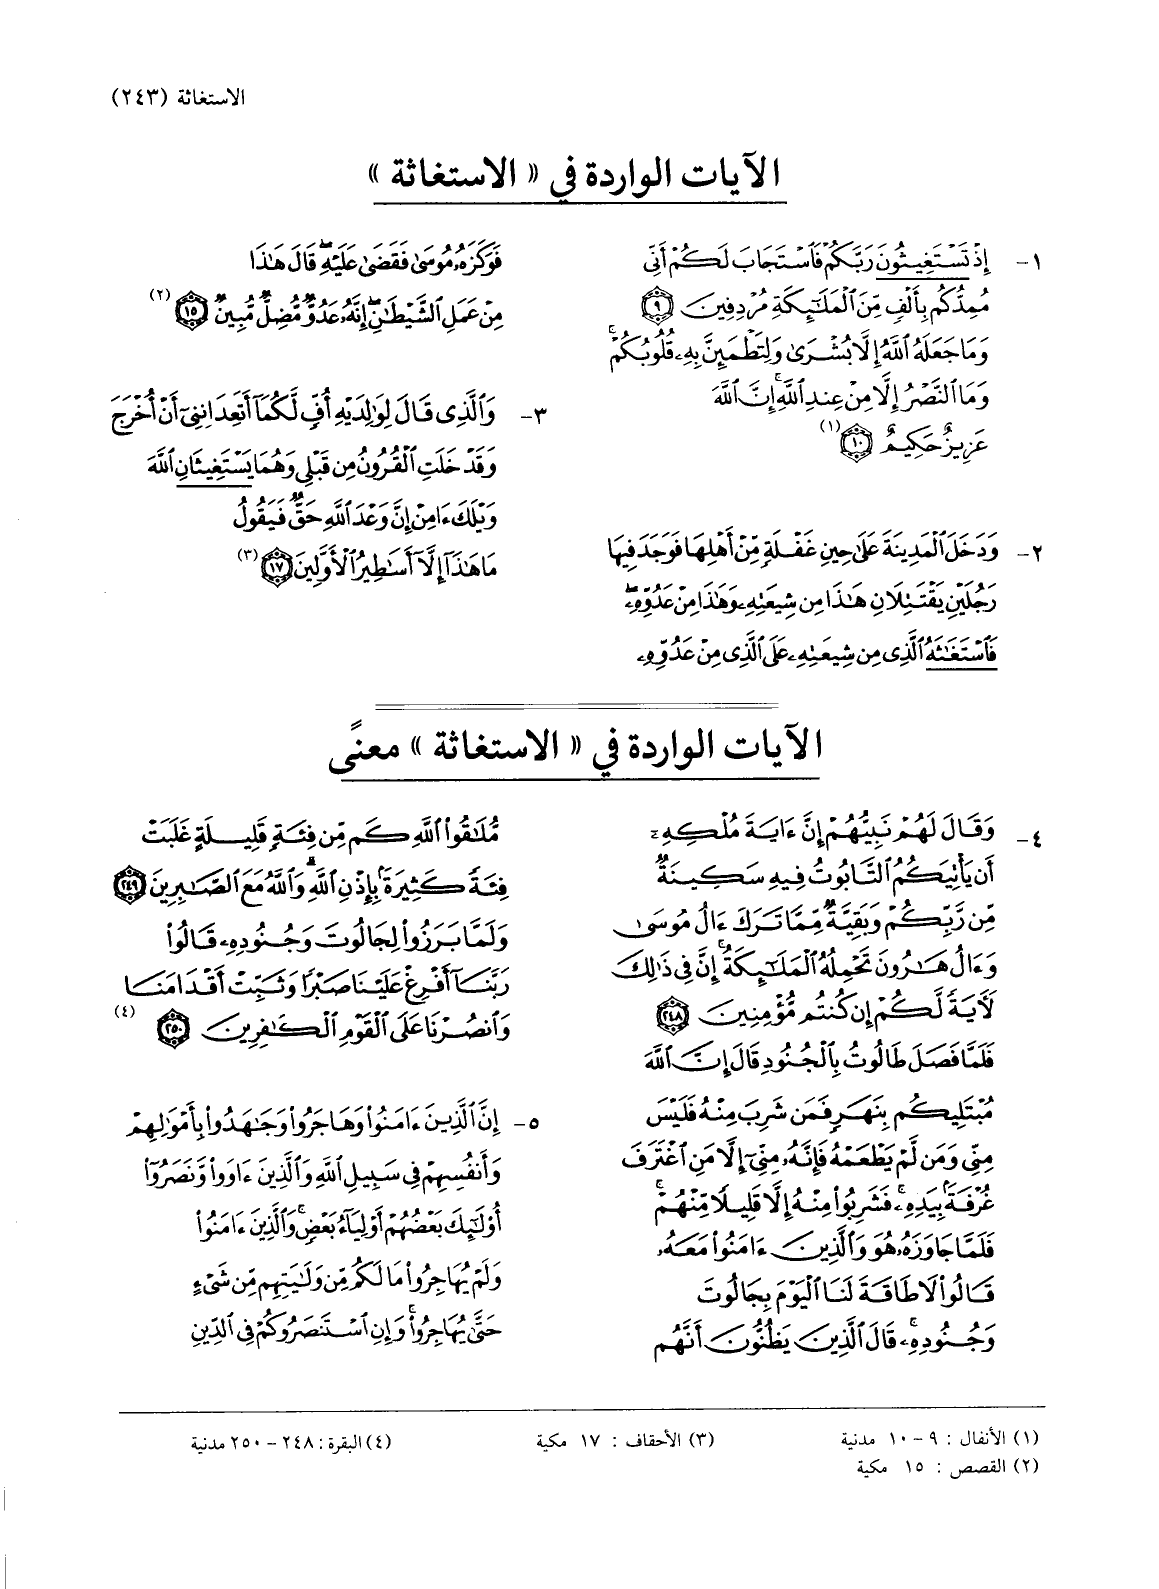 الاستغاثة (٢٤٣)
الآيات الواردة في « الاستغاثة »
١- إِذْ تَسْتَغِيثُونَ رَبَّكُمْ فَٱسْتَجَابَ لَكُمْ أَنِّى
مُمِدُّكُم بِأَلْفٍ مِّنَ ٱلْمَلَٰٓئِكَةِ مُرْدِفِينَ ۝٩
وَمَا جَعَلَهُ ٱللَّهُ إِلَّا بُشْرَىٰ وَلِتَطْمَئِنَّ بِهِۦ قُلُوبُكُمْ ۚ
وَمَا ٱلنَّصْرُ إِلَّا مِنْ عِندِ ٱللَّهِ ۚ إِنَّ ٱللَّهَ
عَزِيزٌ حَكِيمٌ ۝١٠ (١)
٢- وَدَخَلَ ٱلْمَدِينَةَ عَلَىٰ حِينِ غَفْلَةٍ مِّنْ أَهْلِهَا فَوَجَدَ فِيهَا
رَجُلَيْنِ يَقْتَتِلَانِ هَٰذَا مِن شِيعَتِهِۦ وَهَٰذَا مِنْ عَدُوِّهِۦ ۖ
فَٱسْتَغَٰثَهُ ٱلَّذِى مِن شِيعَتِهِۦ عَلَى ٱلَّذِى مِنْ عَدُوِّهِۦ
فَوَكَزَهُۥ مُوسَىٰ فَقَضَىٰ عَلَيْهِ ۖ قَالَ هَٰذَا
مِنْ عَمَلِ ٱلشَّيْطَٰنِ ۖ إِنَّهُۥ عَدُوٌّ مُّضِلٌّ مُّبِينٌ ۝١٥ (٢)
٣- وَٱلَّذِى قَالَ لِوَٰلِدَيْهِ أُفٍّ لَّكُمَآ أَتَعِدَانِنِىٓ أَنْ أُخْرَجَ
وَقَدْ خَلَتِ ٱلْقُرُونُ مِن قَبْلِى وَهُمَا يَسْتَغِيثَانِ ٱللَّهَ
وَيْلَكَ ءَامِنْ إِنَّ وَعْدَ ٱللَّهِ حَقٌّ فَيَقُولُ
مَا هَٰذَآ إِلَّآ أَسَٰطِيرُ ٱلْأَوَّلِينَ ۝١٧ (٣)
الآيات الواردة في « الاستغاثة » معنًى
٤- وَقَالَ لَهُمْ نَبِيُّهُمْ إِنَّ ءَايَةَ مُلْكِهِۦٓ
أَن يَأْتِيَكُمُ ٱلتَّابُوتُ فِيهِ سَكِينَةٌ
مِّن رَّبِّكُمْ وَبَقِيَّةٌ مِّمَّا تَرَكَ ءَالُ مُوسَىٰ
وَءَالُ هَٰرُونَ تَحْمِلُهُ ٱلْمَلَٰٓئِكَةُ ۚ إِنَّ فِى ذَٰلِكَ
لَءَايَةً لَّكُمْ إِن كُنتُم مُّؤْمِنِينَ ۝٢٤٨
فَلَمَّا فَصَلَ طَالُوتُ بِٱلْجُنُودِ قَالَ إِنَّ ٱللَّهَ
مُبْتَلِيكُم بِنَهَرٍ فَمَن شَرِبَ مِنْهُ فَلَيْسَ
مِنِّى وَمَن لَّمْ يَطْعَمْهُ فَإِنَّهُۥ مِنِّىٓ إِلَّا مَنِ ٱغْتَرَفَ
غُرْفَةًۢ بِيَدِهِۦ ۚ فَشَرِبُوا۟ مِنْهُ إِلَّا قَلِيلًا مِّنْهُمْ ۚ
فَلَمَّا جَاوَزَهُۥ هُوَ وَٱلَّذِينَ ءَامَنُوا۟ مَعَهُۥ
قَالُوا۟ لَا طَاقَةَ لَنَا ٱلْيَوْمَ بِجَالُوتَ
وَجُنُودِهِۦ ۚ قَالَ ٱلَّذِينَ يَظُنُّونَ أَنَّهُم
مُّلَٰقُوا۟ ٱللَّهِ كَم مِّن فِئَةٍ قَلِيلَةٍ غَلَبَتْ
فِئَةً كَثِيرَةًۢ بِإِذْنِ ٱللَّهِ ۗ وَٱللَّهُ مَعَ ٱلصَّٰبِرِينَ ۝٢٤٩
وَلَمَّا بَرَزُوا۟ لِجَالُوتَ وَجُنُودِهِۦ قَالُوا۟
رَبَّنَآ أَفْرِغْ عَلَيْنَا صَبْرًا وَثَبِّتْ أَقْدَامَنَا
وَٱنصُرْنَا عَلَى ٱلْقَوْمِ ٱلْكَٰفِرِينَ ۝٢٥٠ (٤)
٥- إِنَّ ٱلَّذِينَ ءَامَنُوا۟ وَهَاجَرُوا۟ وَجَٰهَدُوا۟ بِأَمْوَٰلِهِمْ
وَأَنفُسِهِمْ فِى سَبِيلِ ٱللَّهِ وَٱلَّذِينَ ءَاوَوا۟ وَّنَصَرُوٓا۟
أُو۟لَٰٓئِكَ بَعْضُهُمْ أَوْلِيَآءُ بَعْضٍ ۚ وَٱلَّذِينَ ءَامَنُوا۟
وَلَمْ يُهَاجِرُوا۟ مَا لَكُم مِّن وَلَٰيَتِهِم مِّن شَىْءٍ
حَتَّىٰ يُهَاجِرُوا۟ ۚ وَإِنِ ٱسْتَنصَرُوكُمْ فِى ٱلدِّينِ
(١) الأنفال : ٩ - ١٠ مدنية
(٢) القصص : ١٥ مكية
(٣) الأحقاف : ١٧ مكية
(٤) البقرة : ٢٤٨ - ٢٥٠ مدنية